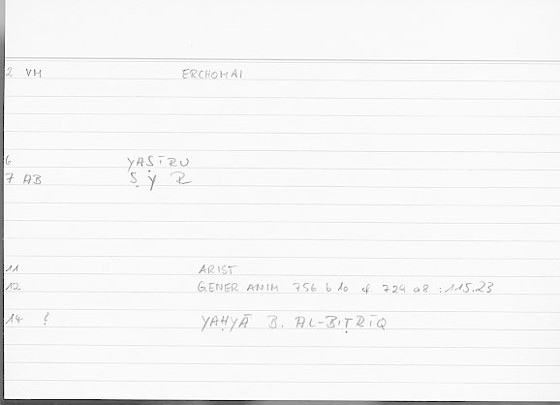 2 VM ERCHOMAI
6 YAṢĪRU
7 AB Ṣ Y R
11 ARIST
12 GENER ANIM 756 b 10 cf. 724 a8 : 115.23
14 ? YAḤYĀ B. AL-BIṬRĪQ